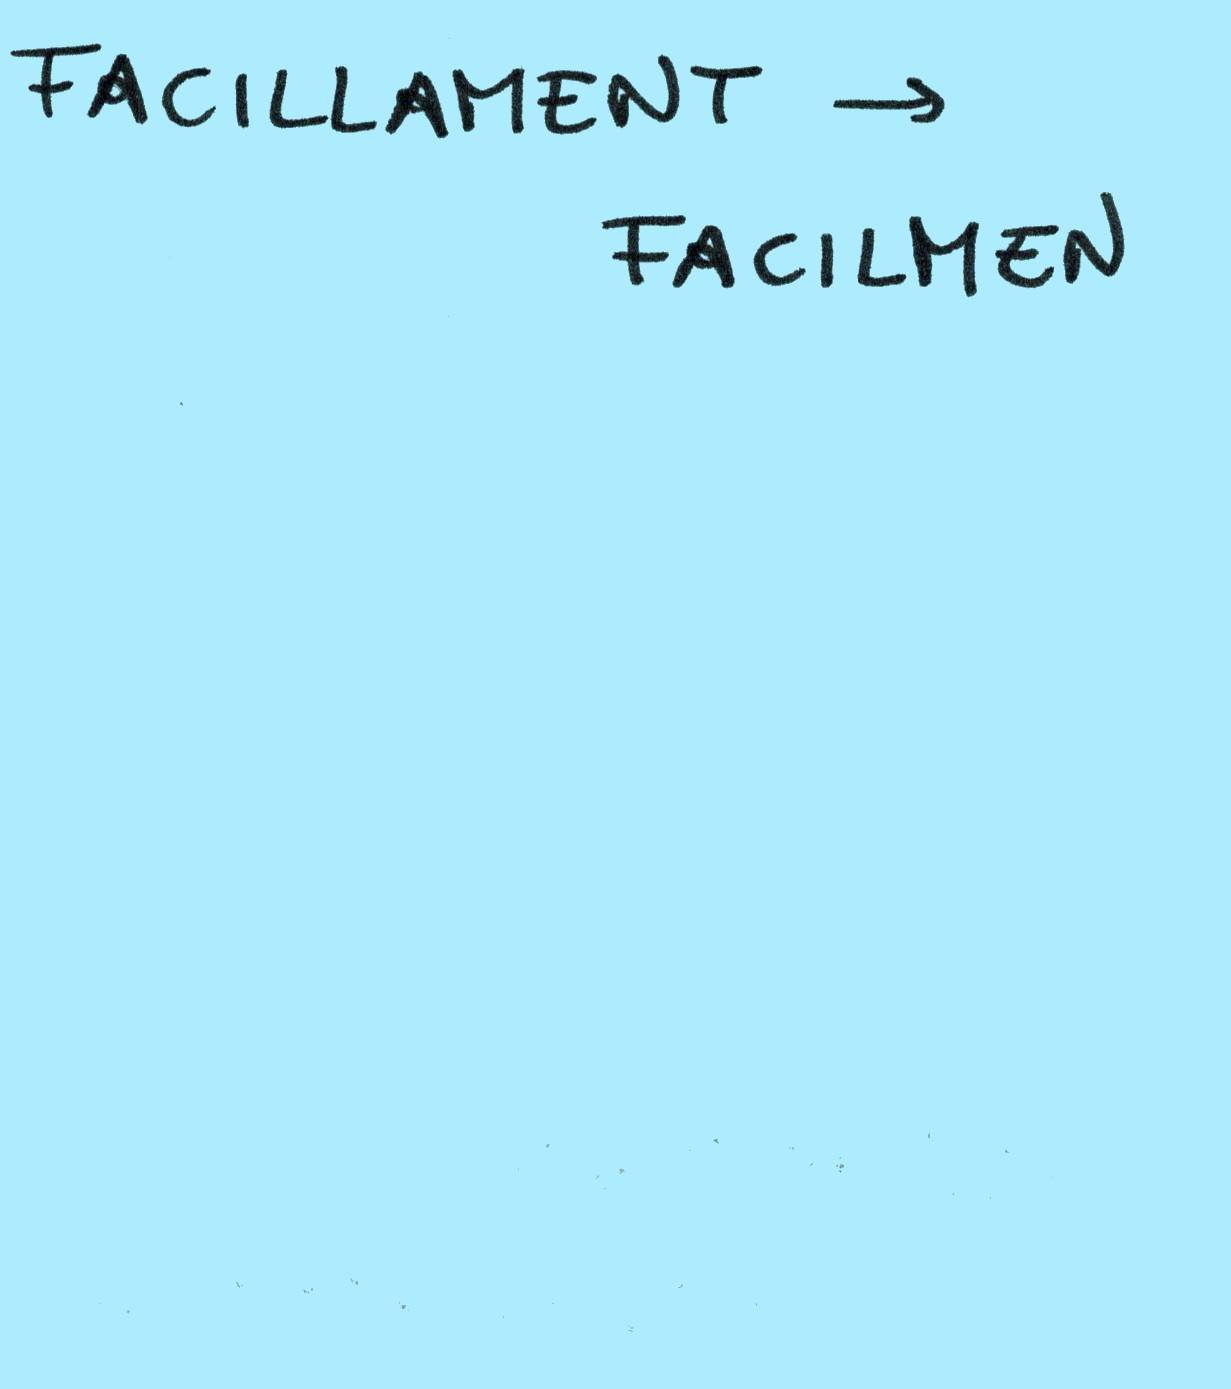 FACILLAMENT →
FACILMEN